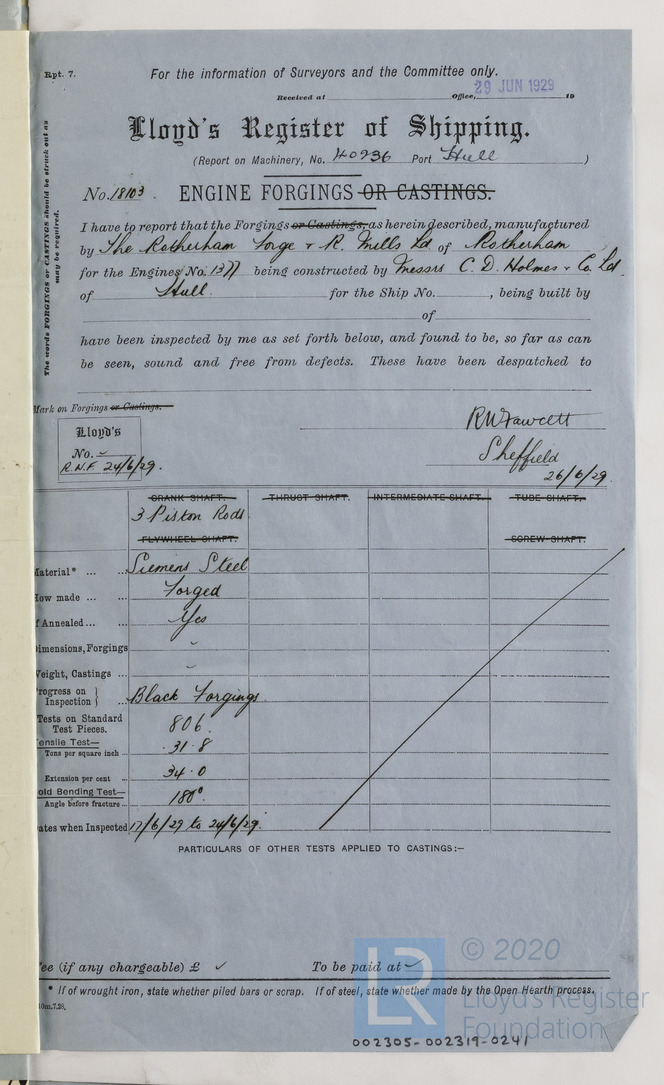 Rpt. 7.
For the information of Surveyors and the Committee only.
Received at Office, 29 JUN 1929 19
Lloyd's Register of Shipping.
(Report on Machinery, No. 40936 Port Hull )
The words FORGINGS or CASTINGS should be struck out as
may be required.
No. 18103. ENGINE FORGINGS OR CASTINGS.
I have to report that the Forgings or Castings, as herein described, manufactured
by The Rotherham Forge & R. Mills Ld of Rotherham
for the Engines No. 1377 being constructed by Messrs C. D. Holmes & Co. Ld.
of Hull. for the Ship No. , being built by
of
have been inspected by me as set forth below, and found to be, so far as can
be seen, sound and free from defects. These have been despatched to
Mark on Forgings or Castings.
Lloyd's
No.
R.N.F. 24/6/29.
RWFawcett
Sheffield
26/6/29.
CRANK SHAFT. THRUST SHAFT. INTERMEDIATE SHAFT. TUBE SHAFT.
3 Piston Rods
FLYWHEEL SHAFT. SCREW SHAFT.
Material* ... ... Siemens Steel
How made ... ... Forged
If Annealed ... ... Yes
Dimensions, Forgings
Weight, Castings ...
Progress on
Inspection } Black Forgings
Tests on Standard
Test Pieces. 806.
Tensile Test—
Tons per square inch ... 31.8
Extension per cent ... 34.0
Cold Bending Test—
Angle before fracture ... 180°.
Dates when Inspected 17/6/29 to 24/6/29.
PARTICULARS OF OTHER TESTS APPLIED TO CASTINGS:—
Fee (if any chargeable) £ To be paid at
* If of wrought iron, state whether piled bars or scrap. If of steel, state whether made by the Open Hearth process.
10m.7.28.
LR
© 2020
Lloyd's Register
Foundation
002305-002319-0241